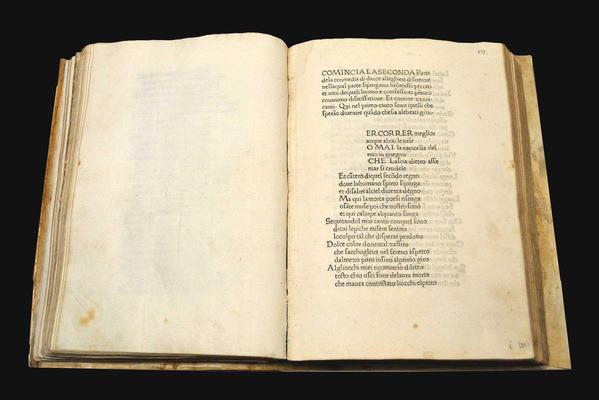 COMINCIA LA SECONDA Parte
dela comedia di dante alleghieri di firenze
nellaqual parte si purgano li comessi peccati
et uitii dequali luomo e confesso et pentuto
con animo di satisfatione. Et contene .xxxiii.
canti. Qui nel primo canto sono quelli che
sperão di uenire quãdo chesia alebeati genti.
ER CORRER meglior
acque alzai le uele
O MAI la nauicella del
mio in gegno
CHE Lascia dietro asse
mar si crudele
Et cãtero di quel secõdo regno
doue luhumano spirito si purga
et di salire al ciel diuenta degno
Ma qui la morta poesi risurga
o sãte muse poi che uostro sono
et qui caliope alquanto surga
Seguitando il mio canto con quel sono
di cui le piche misere sentiro
lo colpo tal che disperar perdono
Dolce color doriental zaffiro
che saccoglieua nel sereno aspetto
dal mezo puro infino al primo giro
A gliocchi miei ricomincio diletto
tosto chio usci fuor de laura morta
che mauea contristato liocchi el petto